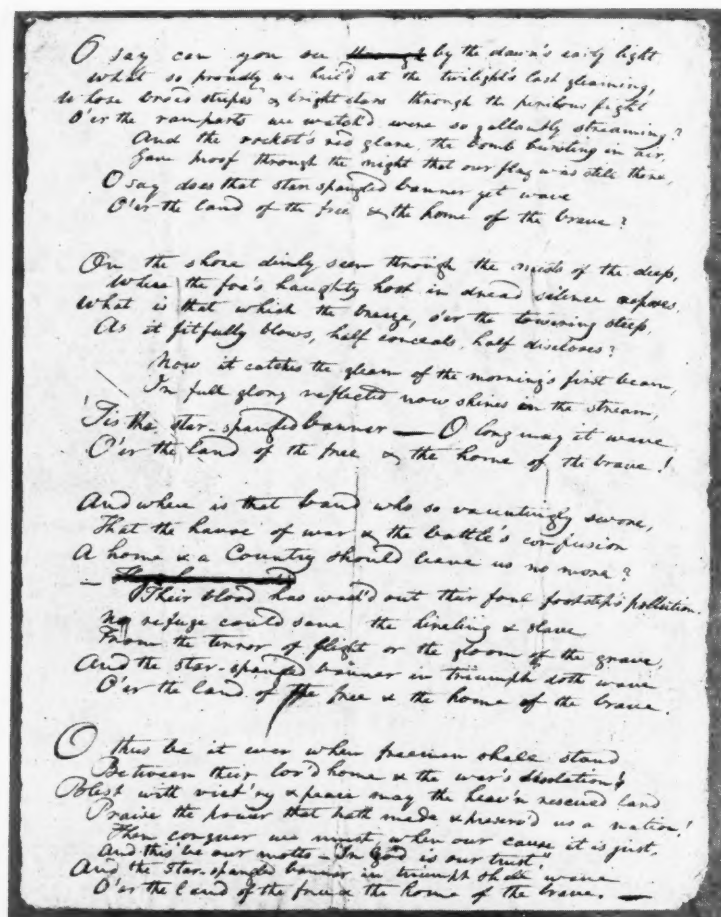 O say can you see by the dawn's early light
What so proudly we hail'd at the twilight's last gleaming,
Whose broad stripes & bright stars through the perilous fight
O'er the ramparts we watch'd, were so gallantly streaming?
And the rocket's red glare, the bomb bursting in air,
Gave proof through the night that our flag was still there,
O say does that star spangled banner yet wave
O'er the land of the free & the home of the brave?
On the shore dimly seen through the mists of the deep,
Where the foe's haughty host in dread silence reposes,
What is that which the breeze, o'er the towering steep,
As it fitfully blows, half conceals, half discloses?
Now it catches the gleam of the morning's first beam,
In full glory reflected now shines in the stream,
'Tis the star-spangled banner — O long may it wave
O'er the land of the free & the home of the brave!
And where is that band who so vauntingly swore,
That the havoc of war & the battle's confusion
A home & a Country should leave us no more?
—
Their blood has wash'd out their foul footstep's pollution.
No refuge could save the hireling & slave
From the terror of flight or the gloom of the grave,
And the star-spangled banner in triumph doth wave
O'er the land of the free & the home of the brave.
O thus be it ever when freemen shall stand
Between their lov'd home & the war's desolation!
Blest with vict'ry & peace may the heav'n rescued land
Praise the power that hath made & preserv'd us a nation!
Then conquer we must, when our cause it is just,
And this be our motto – "In God is our trust,"
And the star-spangled banner in triumph shall wave
O'er the land of the free & the home of the brave. —